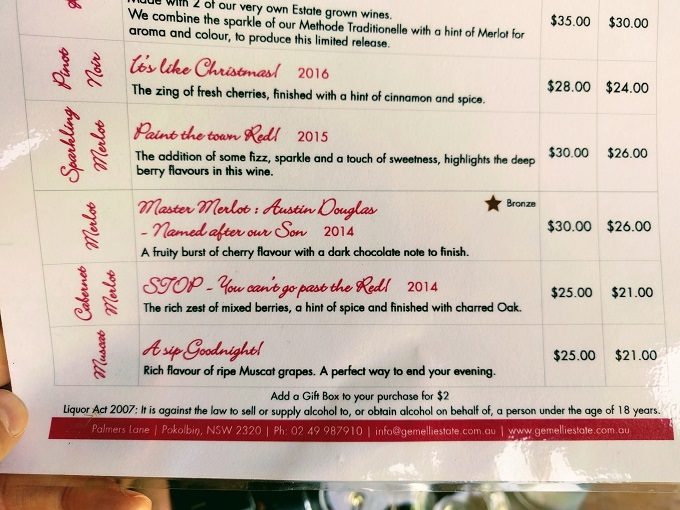 Made with 2 of our very own Estate grown wines.
We combine the sparkle of our Methode Traditionelle with a hint of Merlot for
aroma and colour, to produce this limited release.
$35.00 $30.00
Pinot
Noir
It's like Christmas! 2016
The zing of fresh cherries, finished with a hint of cinnamon and spice.
$28.00 $24.00
Sparkling
Merlot
Paint the town Red! 2015
The addition of some fizz, sparkle and a touch of sweetness, highlights the deep
berry flavours in this wine.
$30.00 $26.00
Merlot
Master Merlot : Austin Douglas
- Named after our Son 2014
Bronze
A fruity burst of cherry flavour with a dark chocolate note to finish.
$30.00 $26.00
Cabernet
Merlot
STOP - You can't go past the Red! 2014
The rich zest of mixed berries, a hint of spice and finished with charred Oak.
$25.00 $21.00
Muscat
A sip Goodnight!
Rich flavour of ripe Muscat grapes. A perfect way to end your evening.
$25.00 $21.00
Add a Gift Box to your purchase for $2
Liquor Act 2007: It is against the law to sell or supply alcohol to, or obtain alcohol on behalf of, a person under the age of 18 years.
Palmers Lane | Pokolbin, NSW 2320 | Ph: 02 49 987910 | info@gemelliestate.com.au | www.gemelliestate.com.au